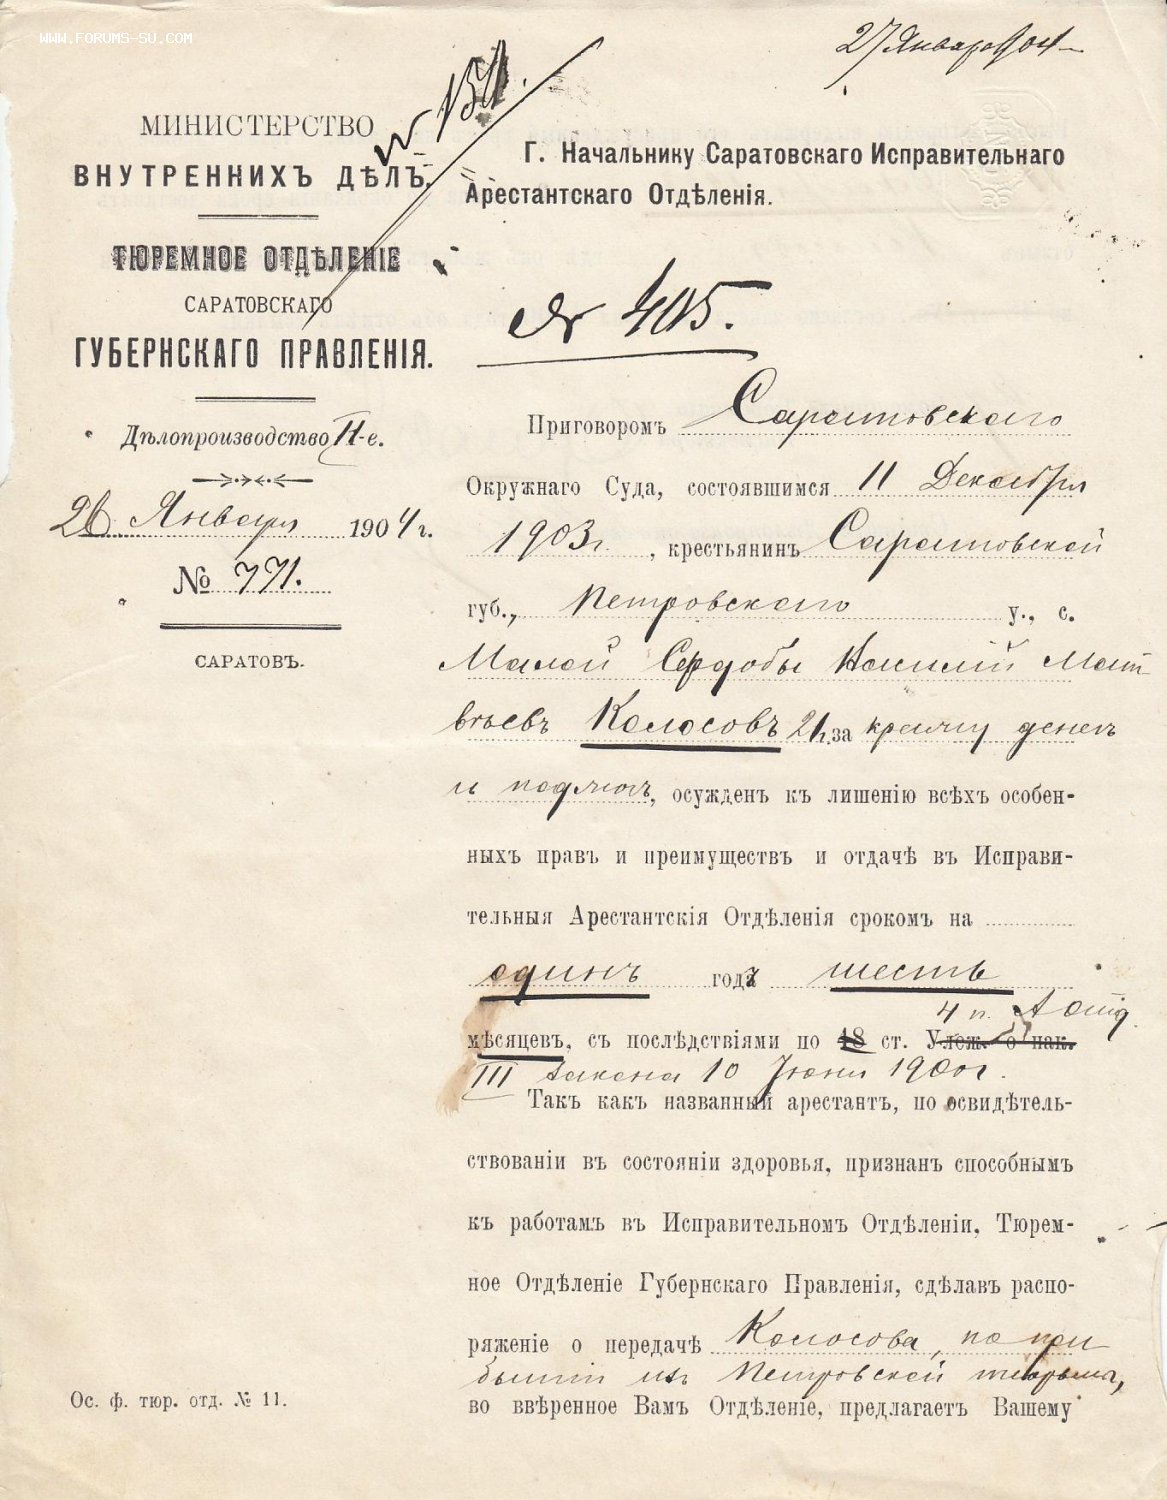 WWW.FORUMS-SU.COM
27 Января 904
№ 151.
МИНИСТЕРСТВО
ВНУТРЕННИХЪ ДѢЛЪ.
ТЮРЕМНОЕ ОТДѢЛЕНІЕ
САРАТОВСКАГО
ГУБЕРНСКАГО ПРАВЛЕНІЯ.
Дѣлопроизводство II-е.
26 Января 1904 г.
№ 771.
САРАТОВЪ.
Г. Начальнику Саратовскаго Исправительнаго
Арестантскаго Отдѣленія.
№ 405.
Приговоромъ Саратовскаго
Окружнаго Суда, состоявшимся 11 Декабря
1903 г., крестьянинъ Саратовской
губ., Петровскаго у., с.
Малой Сердобы Василій Мат
вѣевъ Колосовъ 21 г. за кражу денег
и поджогъ, осужденъ къ лишенію всѣхъ особен-
ныхъ правъ и преимуществъ и отдачѣ въ Исправи-
тельныя Арестантскія Отдѣленія срокомъ на
одинъ годъ шесть
4 п. А отд.
мѣсяцевъ, съ послѣдствіями по 48 ст. Улож. о нак.
III закона 10 Іюня 1900 г.
Такъ какъ названный арестантъ, по освидѣтель-
ствованіи въ состояніи здоровья, признанъ способнымъ
къ работамъ въ Исправительномъ Отдѣленіи, Тюрем-
ное Отдѣленіе Губернскаго Правленія, сдѣлавъ распо-
ряженіе о передачѣ Колосова, по при
бытіи изъ Петровской тюрьмы,
во ввѣренное Вамъ Отдѣленіе, предлагаетъ Вашему
Ос. ф. тюр. отд. № 11.